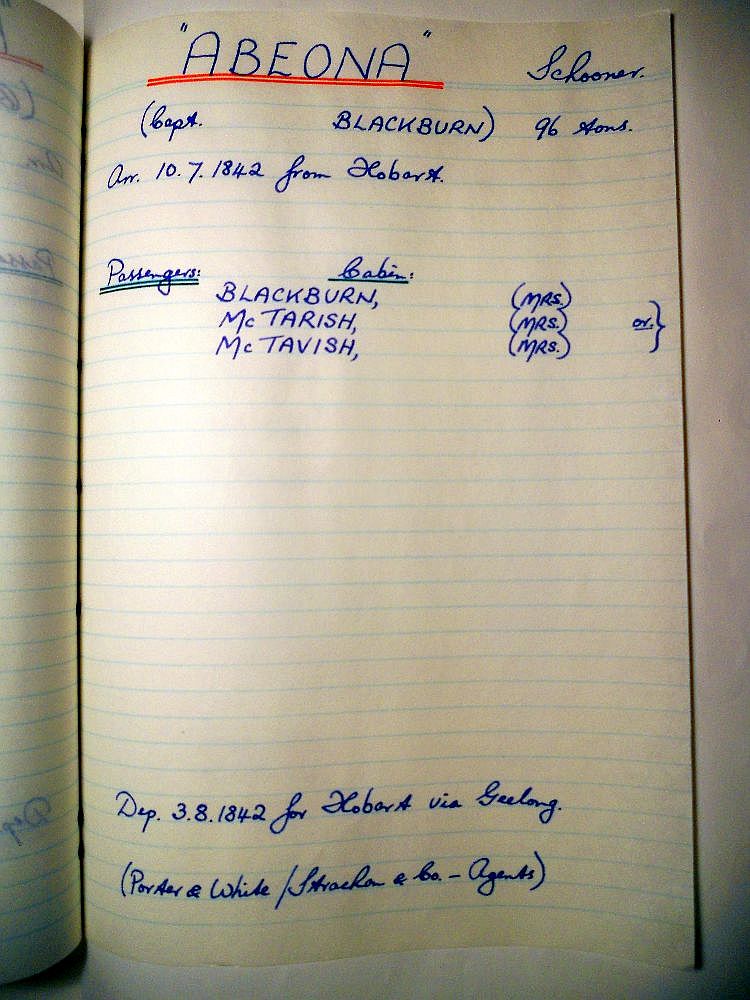 "ABEONA" Schooner.
(Capt. BLACKBURN) 96 tons.
Arr. 10.7.1842 from Hobart.
Passengers: Cabin:
BLACKBURN, (MRS.)
McTARISH, (MRS.) or.}
McTAVISH, (MRS.)
Dep. 3.8.1842 for Hobart via Geelong.
(Porter & White / Strachan & Co. - Agents)